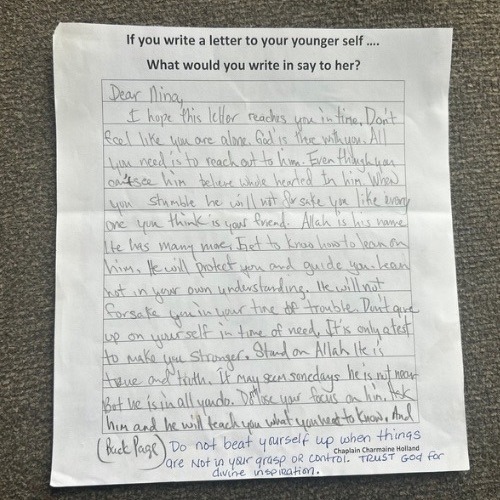 If you write a letter to your younger self ....
What would you write in say to her?
Dear Nina,
I hope this letter reaches you in time. Don't
feel like you are alone. God is there with you. All
you need is to reach out to him. Even though you
can't see him believe whole hearted In him. When
you stumble he will not forsake you like every
one you think is your friend. Allah is his name
He has many mac. Get to know how to lean on
him. He will protect you and guide you. Lean
not in your own understanding. He will not
forsake you in your time of trouble. Don't give
up on yourself in time of need. It's only a test
to make you stronger. Stand on Allah He is
true and truth. It may seem somedays he is not near
But he is in all you do. Dont lose your focus on him. Ask
him and he will teach you what you need to know. And
(Back Page) Do not beat yourself up when things
Chaplain Charmaine Holland
are Not in your grasp or control. Trust God for
divine inspiration.